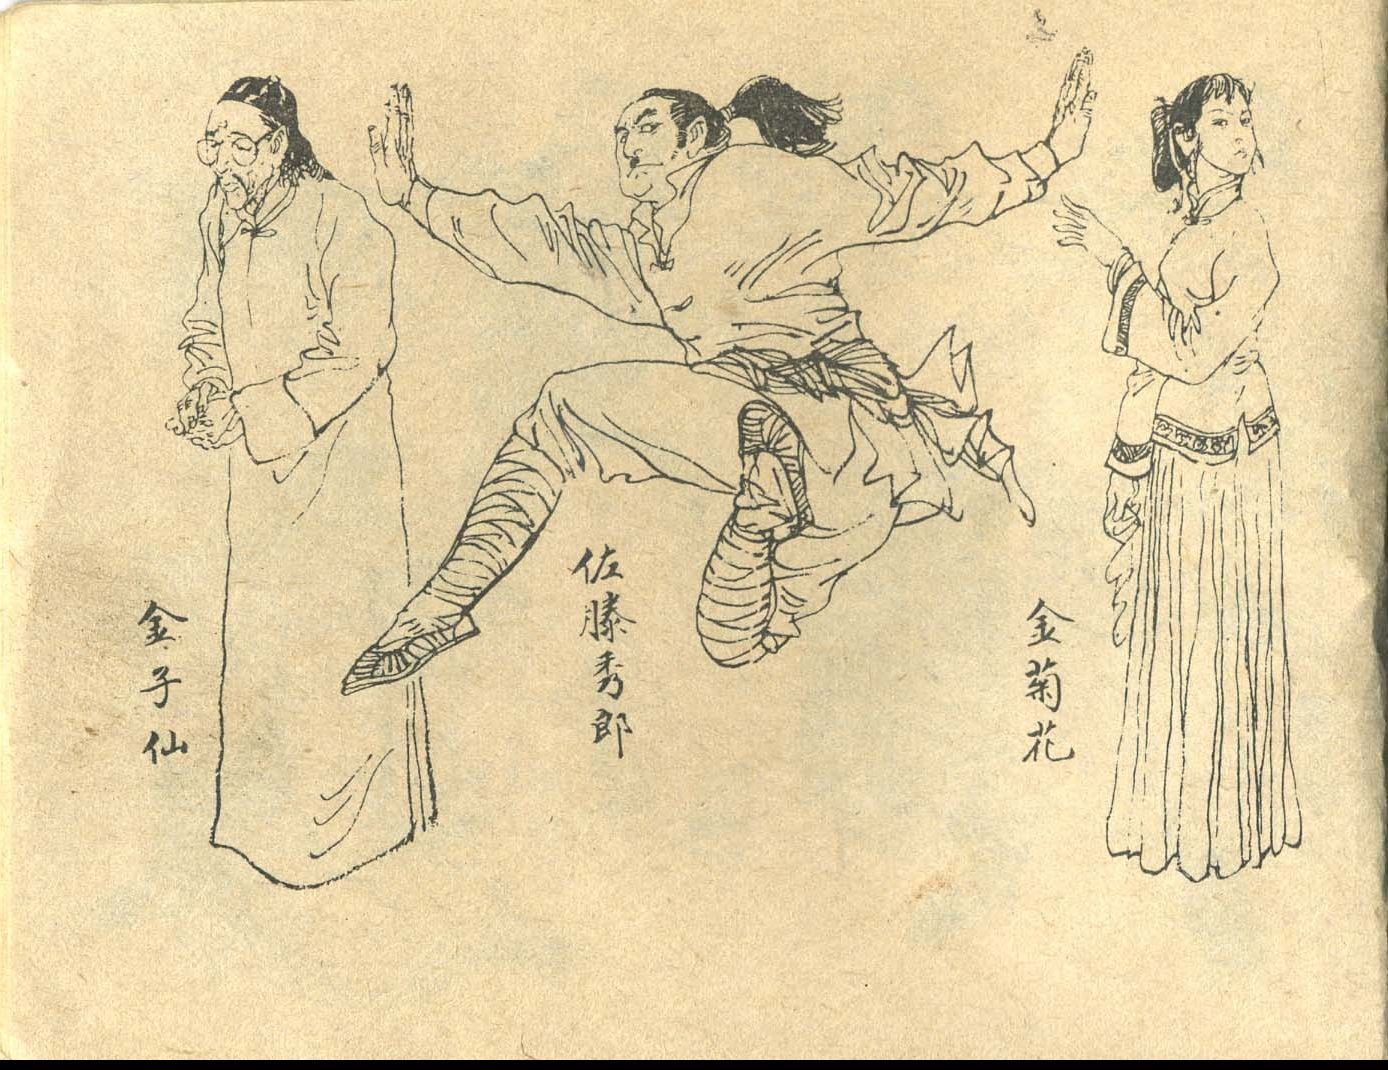 金子仙
佐滕秀郎
金菊花